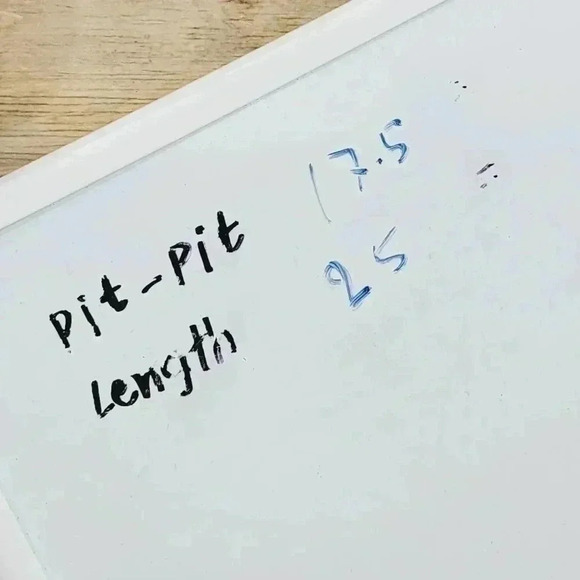 Pit-Pit 17.5
Length 25